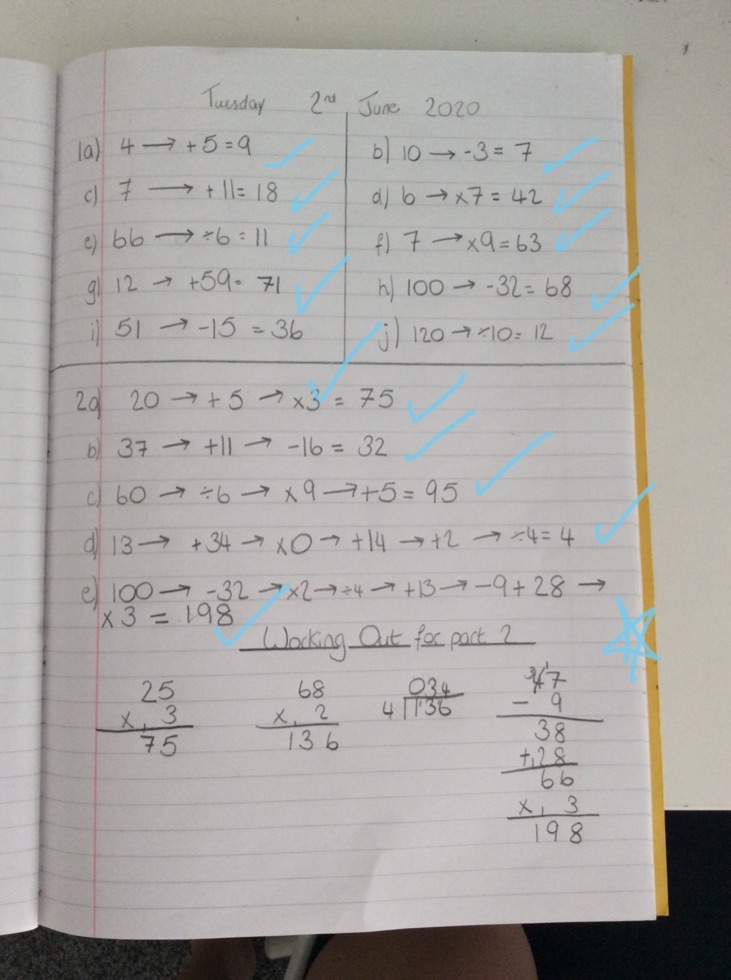 Tuesday 2nd June 2020
1a) 4 → +5 = 9
b) 10 → -3 = 7
c) 7 → +11 = 18
d) 6 → ×7 = 42
e) 66 → ÷6 = 11
f) 7 → ×9 = 63
g) 12 → +59 = 71
h) 100 → -32 = 68
i) 51 → -15 = 36
j) 120 → ÷10 = 12
2a) 20 → +5 → ×3 = 75
b) 37 → +11 → -16 = 32
c) 60 → ÷6 → ×9 → +5 = 95
d) 13 → +34 → ×0 → +14 → +2 → ÷4 = 4
e) 100 → -32 → ×2 → ÷4 → +13 → -9 + 28 →
×3 = 198
Working Out for part 2
25
× 1 3
75
68
× 1 2
136
034
4 1¹3¹6
³4¹7
- 9
38
+128
66
× 1 3
198